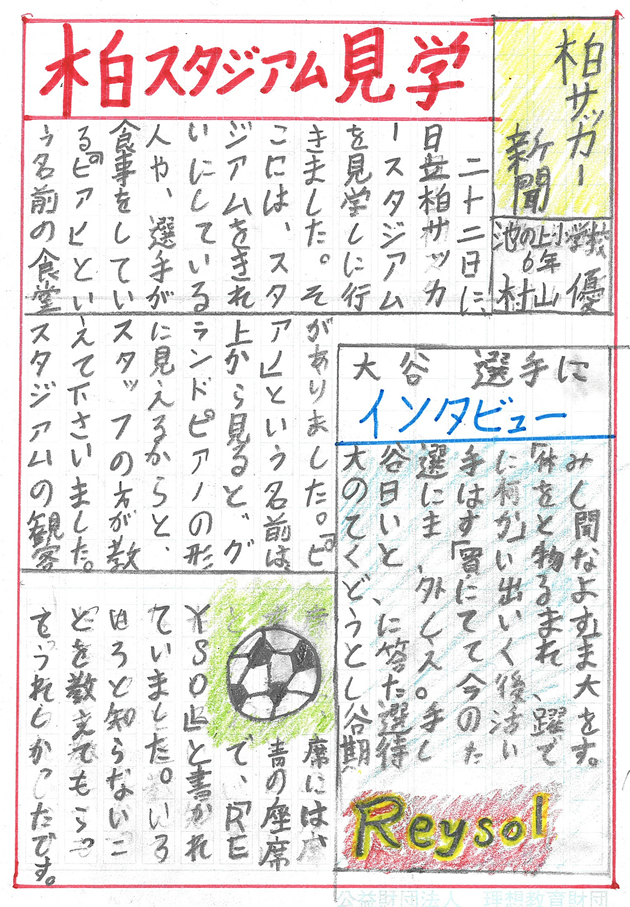 柏サッカー
新聞
池の上小学校
6年
村山 優
柏スタジアム見学
二十二日に、
日立柏サッカ
ースタジアム
を見学しに行
きました。そ
こには、スタ
ジアムをきれ
いにしている
人や、選手が
食事をしてい
る『ピアノ』とい
う名前の食堂
がありました。『ピ
アノ』という名前は、
上から見ると、"グ
ランドピアノの形
に見えるからと、
スタッフの方が教
えて下さいました。
スタジアムの観客
席には
青の座席
で、『RE
YSOL』と書かれ
ていました。いろ
いろと知らないこ
とを教えてもらっ
てうれしかったです。
大谷 選手に
インタビュー
大谷選手に「休み
の日には何をし
ていますか」と聞
くと、「買い物な
ど、外に出るよ
うにしています」
と答えてくれま
した。今後、大
谷選手の活躍を
期待したいです。
Reysol